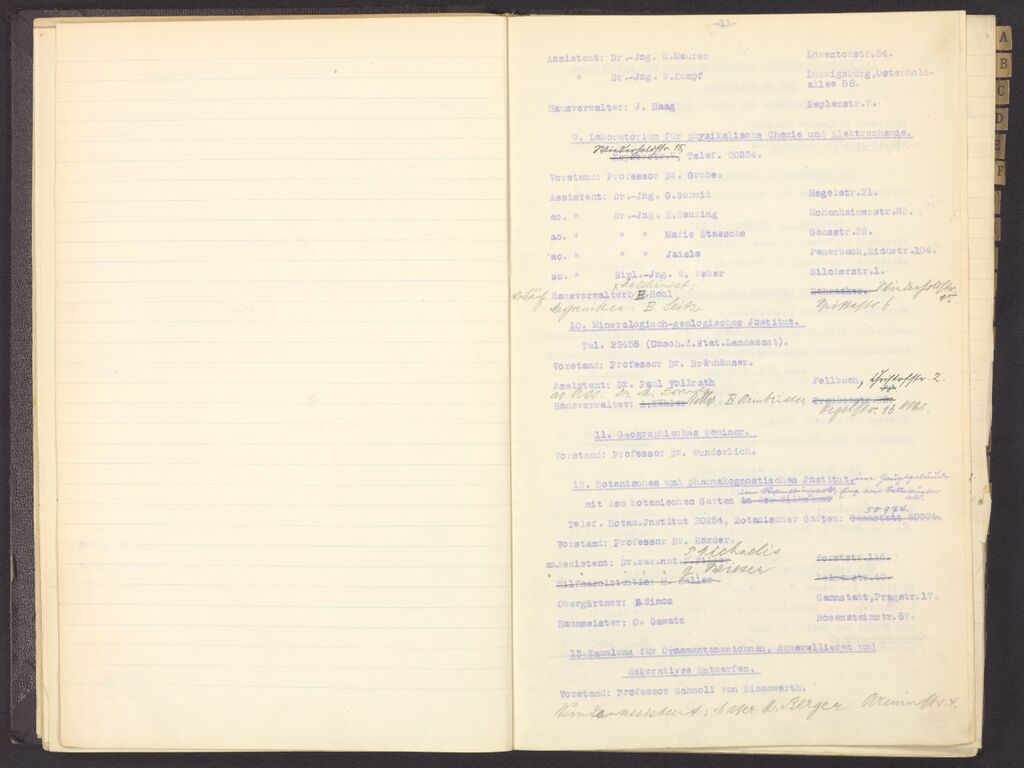 -11-
Assistent: Dr.-Jng. H.Maurer Löwentorstr.54.
" Dr.-Jng. B.Kumpf Ludwigsburg,Osterholz-
allee 58.
Hausverwalter: J. Haag Keplerstr.7.
9. Laboratorium für physikalische Chemie und Elektrochemie.
Wiederholdstr 15,
Keplerstr.7, Telef. 20254.
Vorstand: Professor Dr. Grube.
Assistent: Dr.-Jng. G.Schmid Hegelstr.21.
ao. " Dr.-Jng. E.Benzing Hohenheimerstr.83.
ao. " " " Marie Staesche Gausstr.39.
ao. " " " Jaisle Feuerbach,Eichstr.104.
ao. " Dipl.-Jng. W. Weber Silcherstr.1.
Hausverwalter: E.Hohl Wiederholdstr. 15
Mechaniker: B. Seitz
10. Mineralogisch-geologisches Jnstitut.
Tel. 22458 (Umsch.d.Stat.Landesamt).
Vorstand: Professor Dr. Bräuhäuser.
Assistent: Dr. Paul Vollrath Fellbach,
ao Ass. Dr. M.
Hausverwalter: A.Köhler B. Armbruster Hegelstr. 13
11. Geographisches Seminar.
Vorstand: Professor Dr. Wunderlich.
12. Botanisches und pharmakognostisches Jnstitut, im Hauptgebäude
mit dem botanischen Garten
Telef. Botan.Jnstitut 20254, Botanischer Garten: Cannstatt 50974. 50974.
Vorstand: Professor Dr. Harder.
ao.Assistent: Dr.rer.nat. P. Michaelis Forststr.116.
Hilfsassistentin: M. Haller
Obergärtner: E.Simon Cannstatt,Pragstr.17.
Hausmeister: O. Gawatz Rosensteinstr.87.
13.Sammlung für Ornamentenzeichnen, Aquarellieren und
dekoratives Entwerfen.
Vorstand: Professor Schmoll von Eisenwerth.
Maler K. Berger Arminstr. 4.
A
B
C
D
E
F